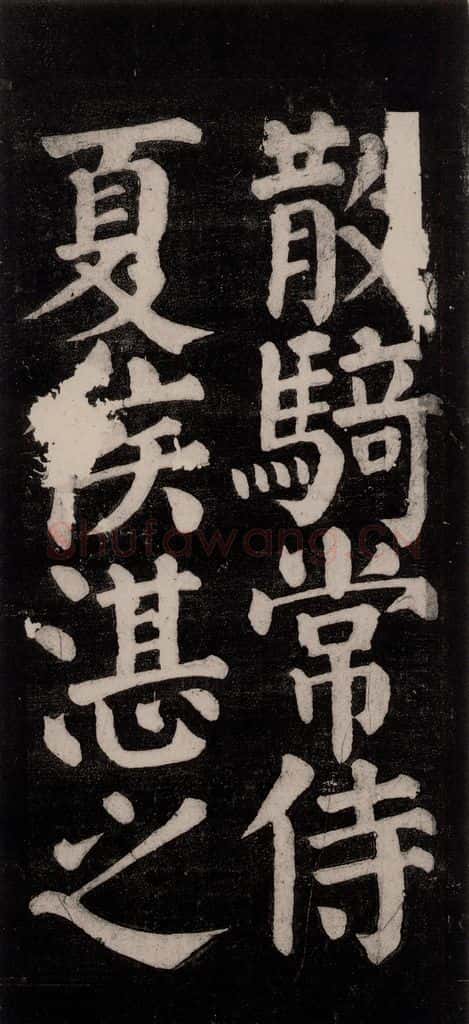 散騎常侍
夏侯湛之
Shufawang.CN